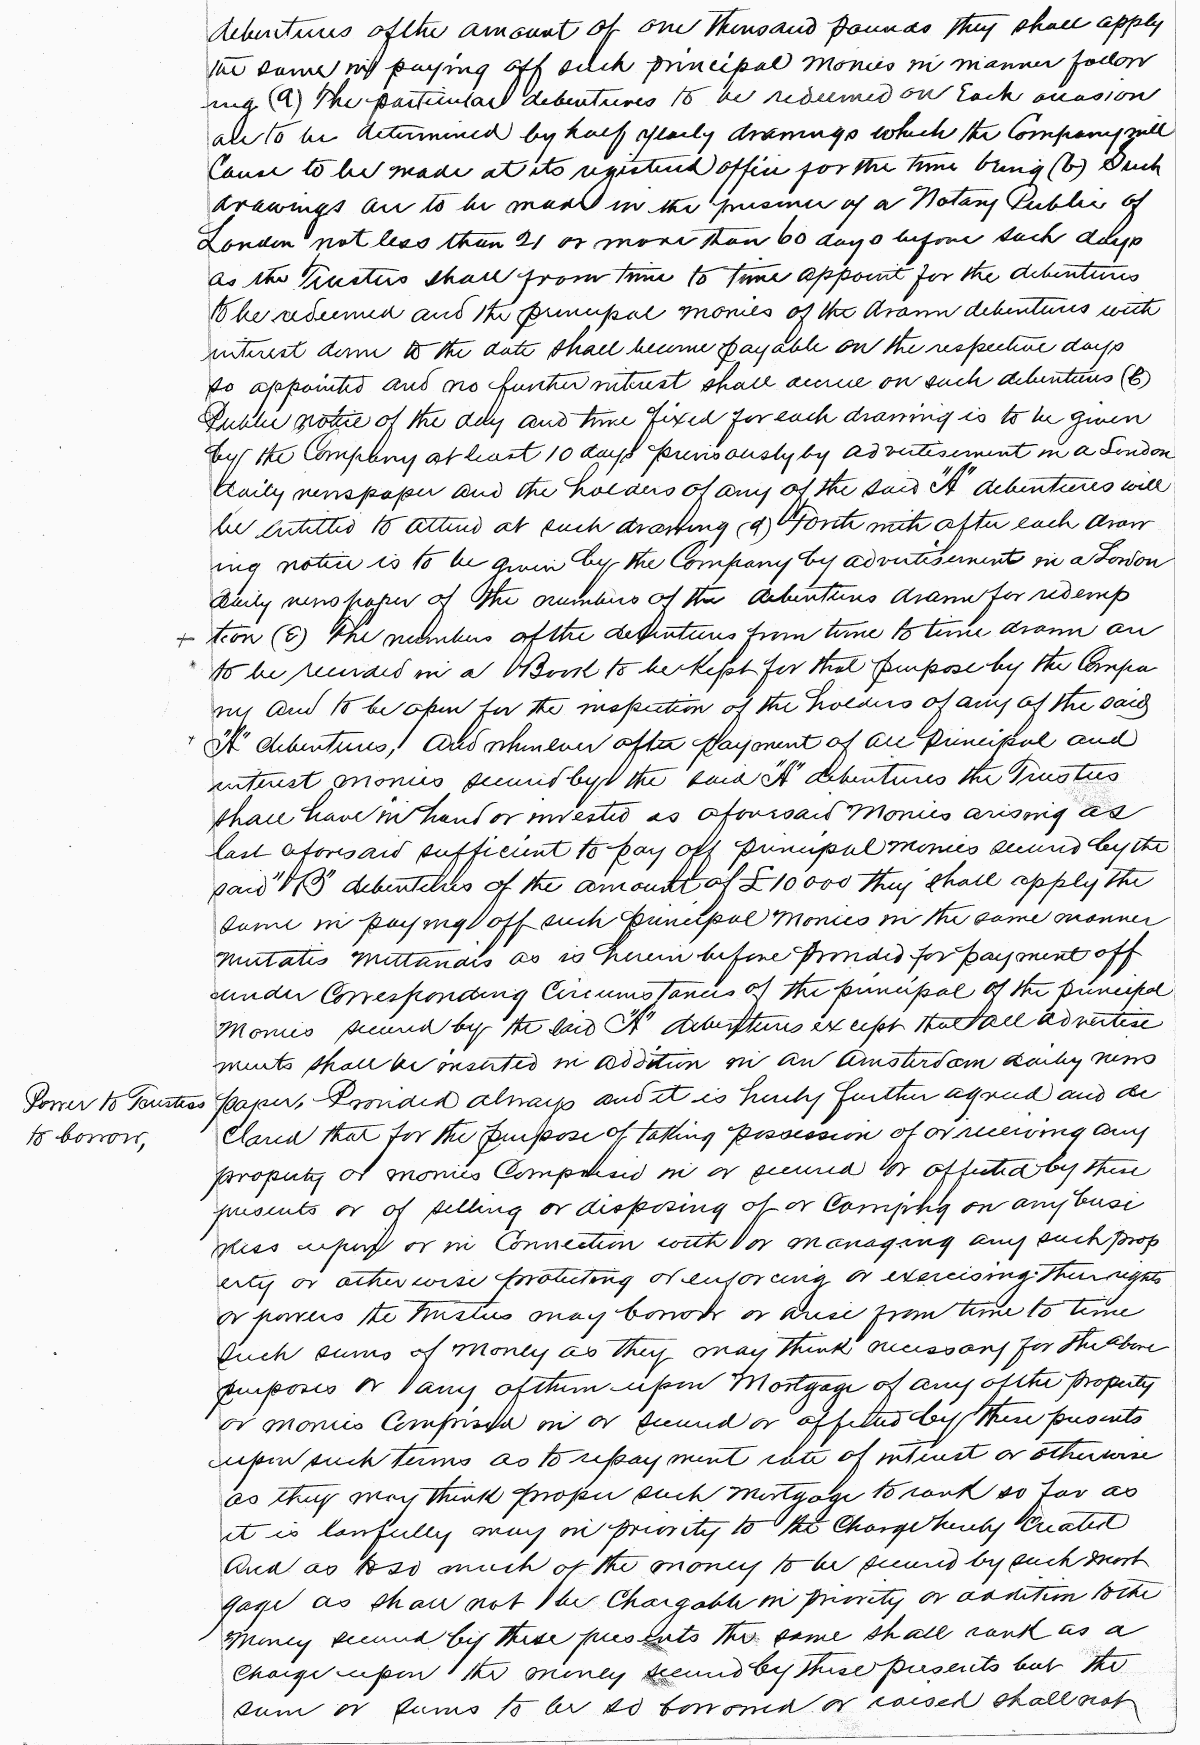 debentures of the amount of one thousand pounds they shall apply
the same in paying off such principal monies in manner follow
ing (a) The particular debentures to be redeemed on Each occasion
are to be determined by half yearly drawings which the Company will
Cause to be made at its registered office for the time being (b) Such
drawings are to be made in the presence of a Notary Public of
London not less than 21 or more than 60 days before such days
as the Trustees shall from time to time appoint for the debentures
to be redeemed and the principal monies of the drawn debentures with
interest down to the date shall become payable on the respective days
so appointed and no further interest shall accrue on such debentures (c)
Public notice of the day and time fixed for each drawing is to be given
by the Company at least 10 days previously by advertisement in a London
daily newspaper and the holders of any of the said "A" debentures will
be entitled to attend at such drawing (d) Forth with after each draw
ing notice is to be given by the Company by advertisement in a London
daily newspaper of the numbers of the debentures drawn for redemp
+ tion (E) The numbers of the debentures from time to time drawn are
to be recorded in a Book to be Kept for that purpose by the Compa
ny and to be open for the inspection of the holders of any of the said
+ "A" debentures, And whenever after payment of all Principal and
interest monies secured by the said "A" debentures the Trustees
shall have in hand or invested as aforesaid Monies arising as
last aforesaid sufficient to pay off principal monies secured by the
said "B" debentures of the amount of £10000 they shall apply the
same in paying off such principal Monies in the same manner
Mutatis Mittandis as is herein before provided for payment off
under Corresponding Circumstances of the principal of the principal
Monies secured by the said "A" debentures except that all advertise
ments shall be inserted in addition in an Amsterdam daily news
Power to Trustees
to borrow,
paper, Provided always and it is hereby further agreed and de
Clared that for the purpose of taking possession of or receiving any
property or monies Comprised in or secured or affected by these
presents or of selling or disposing of or Carrying on any busi
ness upon or in Connection with or managing any such prop
erty or otherwise protecting or enforcing or exercising their rights
or powers the Trustees may borrow or arise from time to time
such sums of Money as they may think necessary for the above
purposes or any of them upon Mortgage of any of the Property
or monies Comprised in or secured or affected by these presents
upon such terms as to repayment rate of interest or otherwise
as they may think proper such Mortgage to rank so far as
it is lawfully may in priority to the Charge hereby Created
And as to so much of the money to be secured by such mort
gage as shall not be Chargable in priority or addition to the
Money secured by these presents the same shall rank as a
Charge upon the money secured by these presents but the
sum or sums to be so borrowed or raised shall not